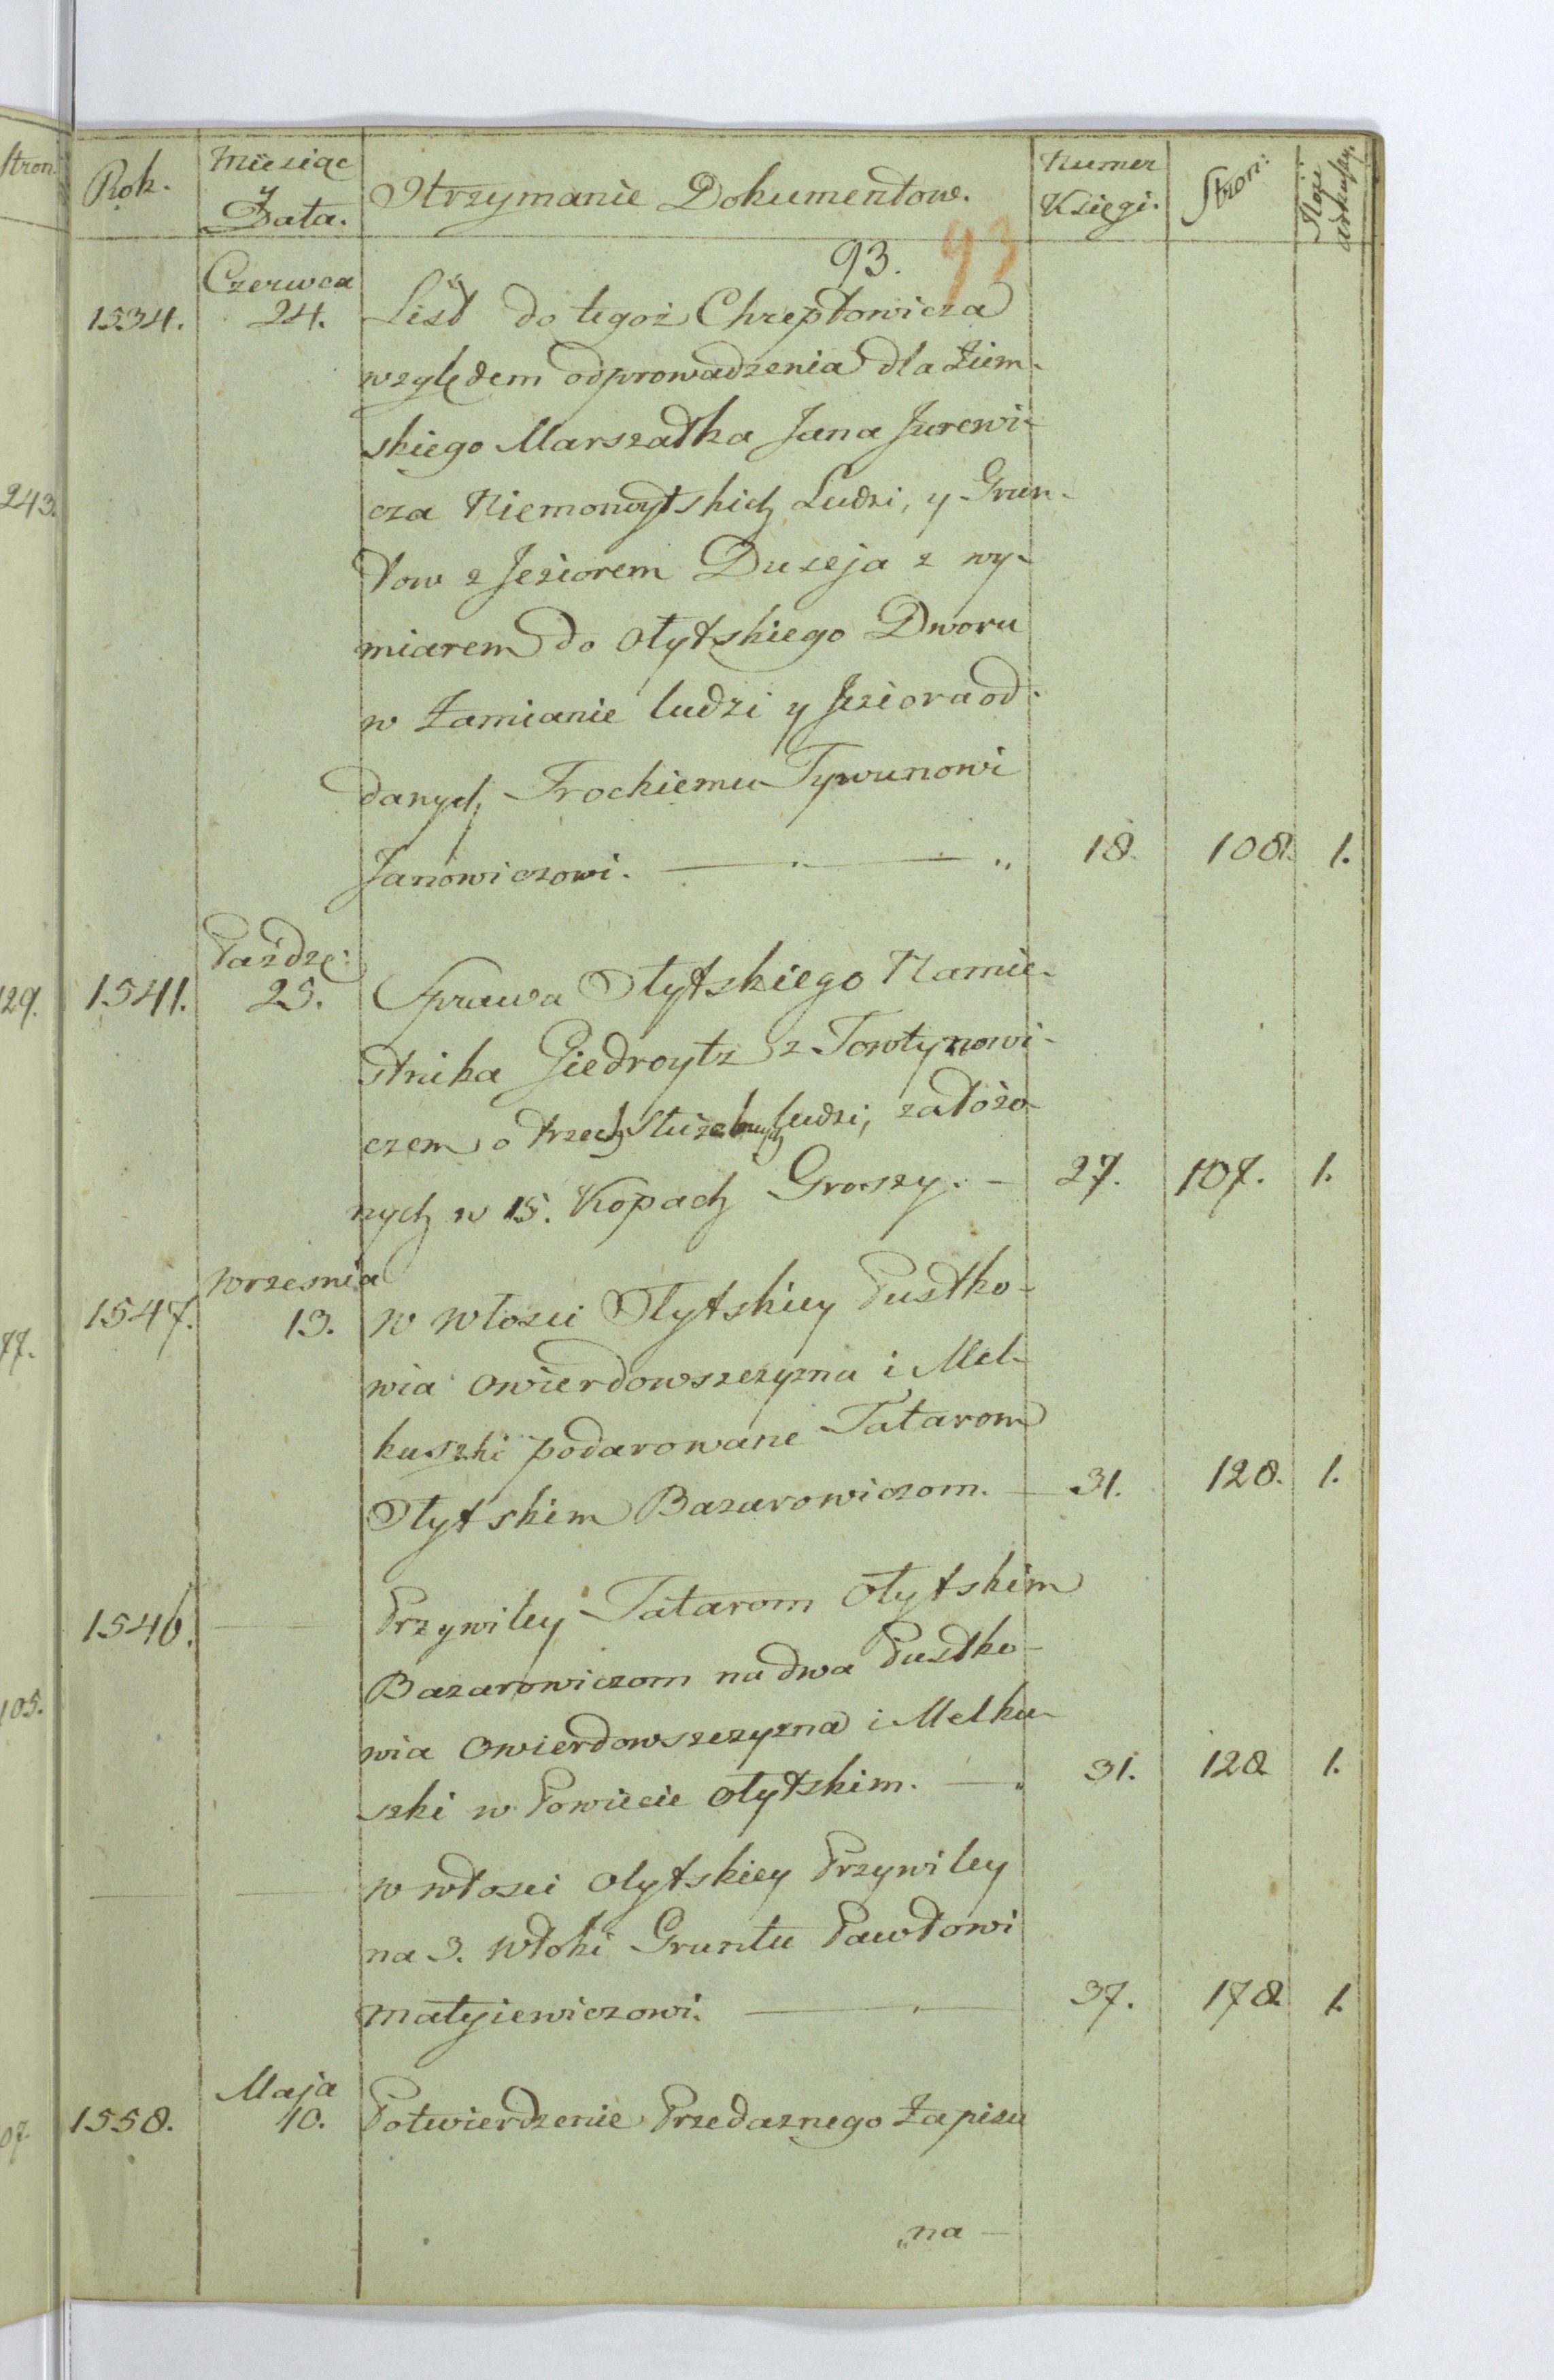 Stron
Rok. Miesiąc y Data. Otrzymanie Dokumentow. Numer Księgi. Stron: Ilość arkuszy.
93. 93
Czerwca
1534. 24. List do tegoż Chreptowicza
względem odprowadzenia dla Ziem-
skiego Marszałka Jana Jurewi-
243.
cza Niemonoytskich Ludzi, y Grun-
tow z Jeziorem Duseja z wy-
miarem do Olytskiego Dworu
w Zamianie ludzi y Jeziora od-
danych Trockiemu Tywunowi
Janowiczowi. 18. 108. 1.
Paźdze:
129. 1541. 25. Sprawa Olytskiego Namie-
stnika Giedroytz z Towtynowi-
czem o trzech Służebnych ludzi, założo-
nych w 15. Kopach Groszy. 27. 107. 1.
Wrzesnia
1547. 13. W Włosci Olytskiey Pustko-
77.
wia Owierdowszczyzna i Mel-
kuszki podarowane Tatarom
Olytskim Bazarowiczom. 31. 128. 1.
1546. Przywiley Tatarom Olytskim
Bazarowiczom na dwa Pustko-
105.
wia Owierdowszczyzna i Melku-
szki w Powiecie Olytskim. 31. 128 1.
W włosci Olytskiey Przywiley
na 3. Włoki Gruntu Pawłowi
Matyjewiczowi. 37. 178. 1.
Maja
07. 1558. 10. Potwierdzenie Przedaznego Zapisu
„na